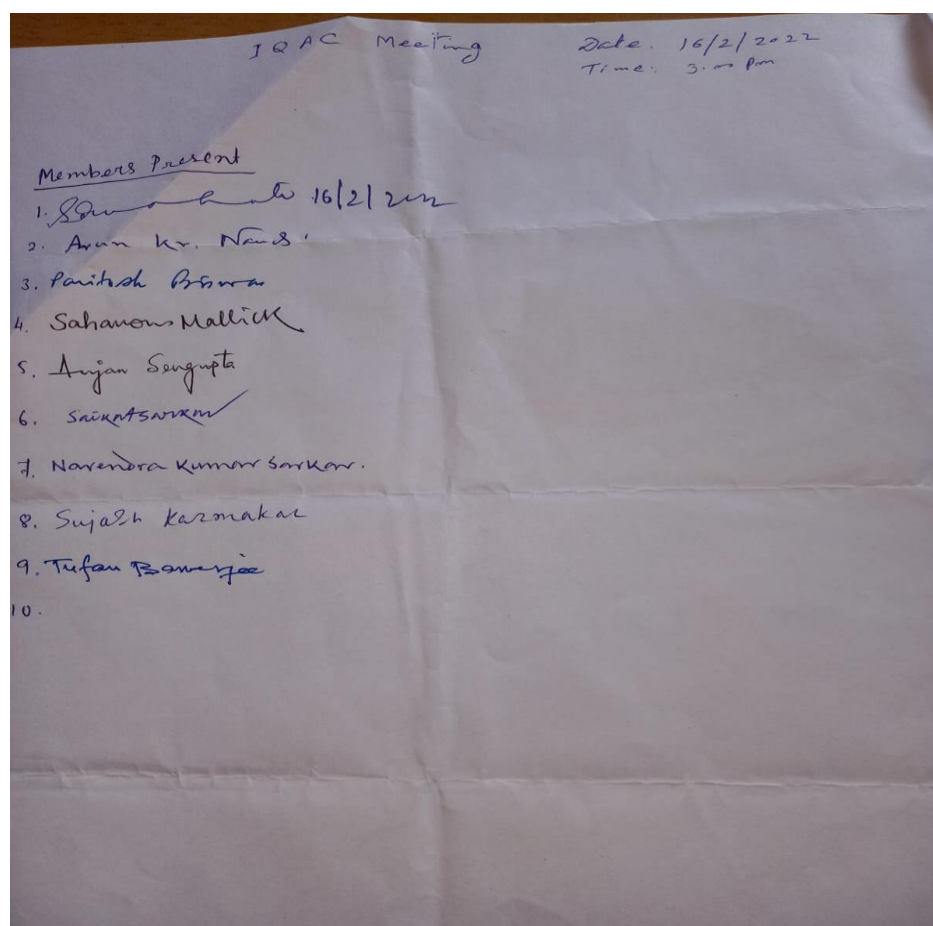 IQAC Meeting
Date. 16/2/2022
Time: 3.00 Pm
Members Present
1. 16/2/2022
2. Arun Kr. Nandi
3. Paritosh Biswas
4. Sahanous Mallick
5. Anjan Sengupta
6. Saikat Sarkar
7. Narendra Kumar Sarkar.
8. Sujash Karmakar
9. Tufan Banerjee
10.